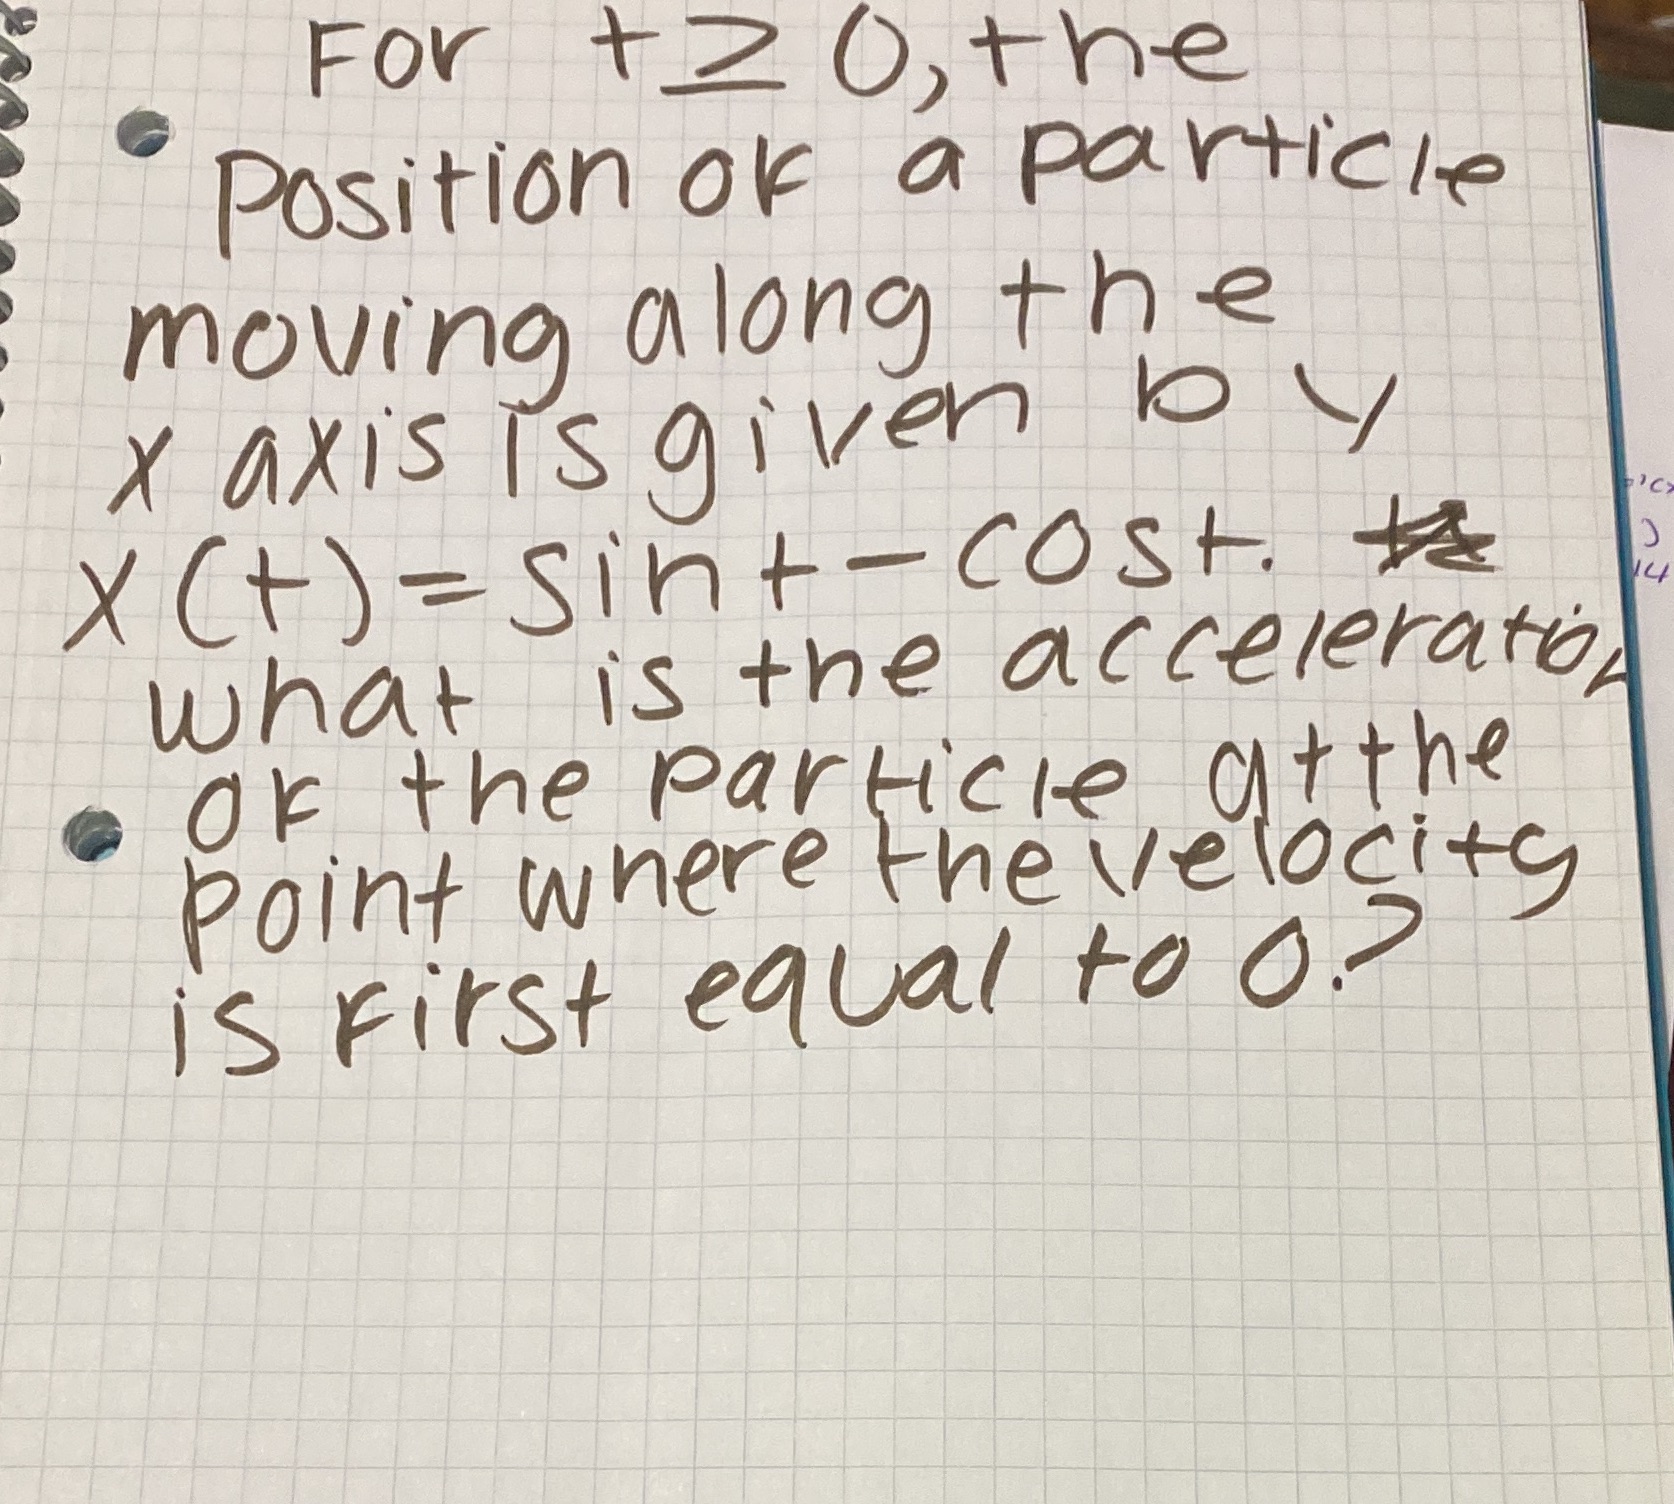 For t ≥ 0, the
position of a particle
moving along the
x axis is given by
x(t) = sint - cost.
what is the acceleration
of the particle at the
point where the velocity
is first equal to 0?